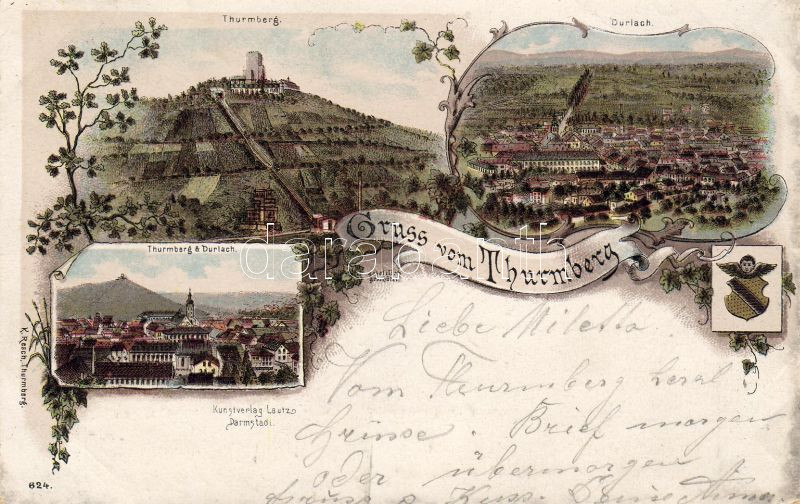 Thurmberg.
Durlach.
Gruss vom Thurmberg
Thurmberg & Durlach.
K. Resch, Thurmberg.
Kunstverlag Lautz
Darmstadt.
624.
darabanth
Liebe Miletta
Vom Thurmberg herzl.
Grüsse. Brief morgen
oder übermorgen
Gruss & Kuss. Deine